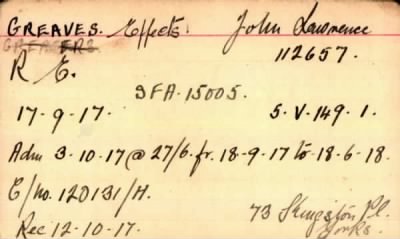 GREAVES. Effects. John Lawrence
GREAVERS. 112657.
R E.
3FA.15005.
17-9-17. 5.V.149.1.
Adm 3.10.17 @ 27/6. fr. 18-9-17 to 18-6-18.
E/no. 120131/H.
73 Kingston Pl.
Rec 12-10-17. Yorks.